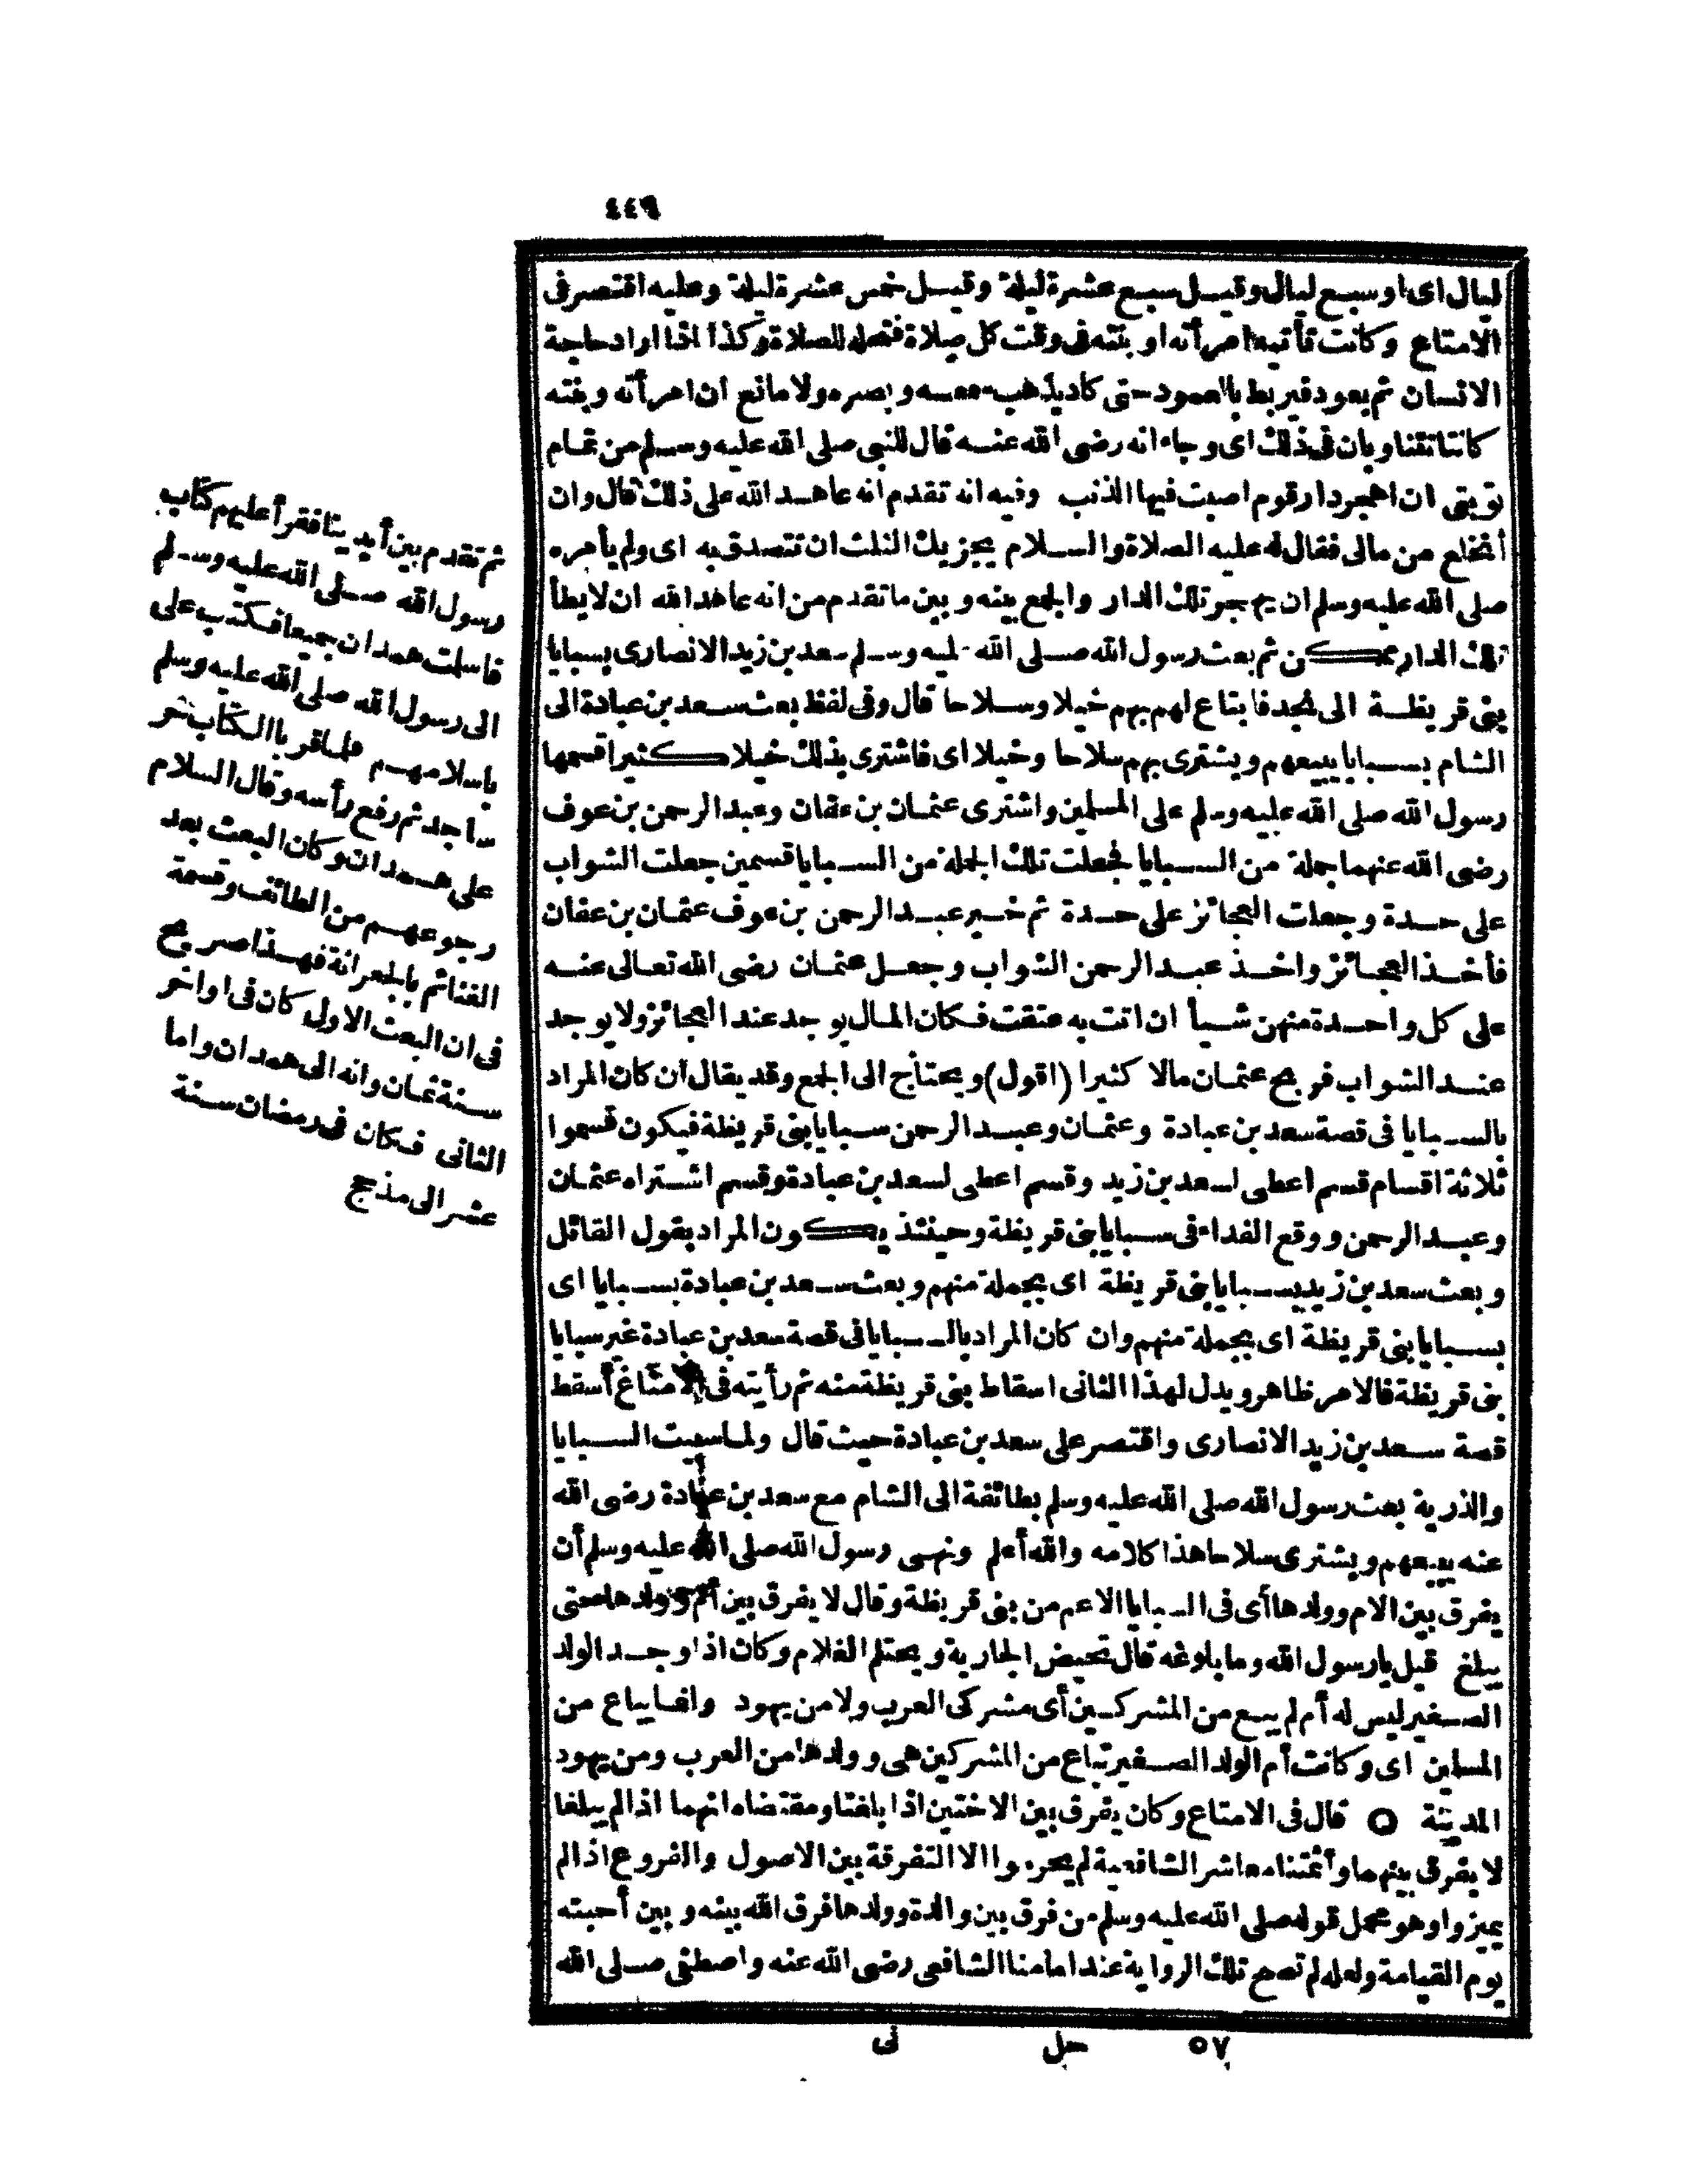 ٤٤٩
ليال اى اوسبع ليال وقيل سبع عشرة ليلة وقيل خمس عشرة ليلة وعليه اقتصر فى
الامتاع وكانت تأتيه امرأته او بنته فى وقت كل صلاة فتحله للصلاة وكذا اذا اراد حاجة
الانسان ثم يعود فيربط بالعمود حتى كاد يذهب سمعه وبصره ولا مانع ان امرأته وبنته
كانتا تتناوبان فى ذلك اى وجاء انه رضى الله عنه قال للنبى صلى الله عليه وسلم من تمام
توبتى ان اهجر دار قوم اصبت فيها الذنب وفيه انه تقدم انه عاهد الله على ذلك قال وان
أنخلع من مالى فقال له عليه الصلاة والسلام يجزيك الثلث ان تتصدق به اى ولم يأمره
صلى الله عليه وسلم ان يهجر تلك الدار والجمع بينه وبين ما تقدم من انه عاهد الله ان لا يطأ
تلك الدار ممكن ثم بعث رسول الله صلى الله عليه وسلم سعد بن زيد الانصارى بسبايا
بنى قريظة الى نجد فابتاع لهم بهم خيلا وسلاحا قال وفى لفظ بعث سعد بن عبادة الى
الشام بسبايا يبيعهم ويشترى بهم سلاحا وخيلا اى فاشترى بذلك خيلا كثيرا قسمها
رسول الله صلى الله عليه وسلم على المسلمين واشترى عثمان بن عفان وعبد الرحمن بن عوف
رضى الله عنهما جملة من السبايا فجعلت تلك الجملة من السبايا قسمين جعلت الشواب
على حدة وجعلت العجائز على حدة ثم خير عبد الرحمن بن عوف عثمان بن عفان
فأخذ العجائز واخذ عبد الرحمن الشواب وجعل عثمان رضى الله تعالى عنه
على كل واحدة منهن شيأ ان اتت به عتقت فكان المال يوجد عند العجائز ولا يوجد
عند الشواب فربح عثمان مالا كثيرا (اقول) ويحتاج الى الجمع وقد يقال ان كان المراد
بالسبايا فى قصة سعد بن عبادة وعثمان وعبد الرحمن سبايا بنى قريظة فيكون قسموا
ثلاثة اقسام قسم اعطى لسعد بن زيد وقسم اعطى لسعد بن عبادة وقسم اشتراه عثمان
وعبد الرحمن ووقع الفداء فى سبايا بنى قريظة وحينئذ يكون المراد بقول القائل
وبعث سعد بن زيد بسبايا بنى قريظة اى بجملة منهم وبعث سعد بن عبادة بسبايا اى
بسبايا بنى قريظة اى بجملة منهم وان كان المراد بالسبايا فى قصة سعد بن عبادة غير سبايا
بنى قريظة فالامر ظاهر ويدل لهذا الثانى اسقاط بنى قريظة منه ثم رأيته فى الامتاع أسقط
قصة سعد بن زيد الانصارى واقتصر على سعد بن عبادة حيث قال ولما سبيت السبايا
والذرية بعث رسول الله صلى الله عليه وسلم بطائفة الى الشام مع سعد بن عبادة رضى الله
عنه يبيعهم ويشترى سلاحا هذا كلامه والله أعلم ونهى رسول الله صلى الله عليه وسلم أن
يفرق بين الام وولدها أى فى السبايا الاعم من بنى قريظة وقال لا يفرق بين أم وولدها حتى
يبلغ قيل يا رسول الله وما بلوغه قال تحيض الجارية ويحتلم الغلام وكان اذا وجد الولد
الصغير ليس له أم لم يبع من المشركين أى مشركى العرب ولا من يهود وانما يباع من
المسلمين اى وكانت أم الولد الصغير تباع من المشركين هى وولدها من العرب ومن يهود
المدينة ○ قال فى الامتاع وكان يفرق بين الاختين اذا بلغتا ومقتضاه انهما اذا لم يبلغا
لا يفرق بينهما وأئمتنا معاشر الشافعية لم يحرموا الا التفرقة بين الاصول والفروع اذا لم
يميزوا وهو محمل قوله صلى الله عليه وسلم من فرق بين والدة وولدها فرق الله بينه وبين أحبته
يوم القيامة ولعله لم تصح تلك الرواية عند امامنا الشافعى رضى الله عنه واصطفى صلى الله
٥٧ حل نى
ثم تقدم بين أيدينا فقرأ عليهم كتاب
رسول الله صلى الله عليه وسلم
فاسلمت همدان جميعا فكتب على
الى رسول الله صلى الله عليه وسلم
باسلامهم فلما قرىء الكتاب خر
ساجد ثم رفع رأسه وقال السلام
على همدان وكان البعث بعد
رجوعهم من الطائف وقسمة
الغنائم بالجعرانة فهذا صريح
فى ان البعث الاول كان فى اواخر
سنة ثمان وانه الى همدان واما
الثانى فكان فى رمضان سنة
عشر الى مذحج